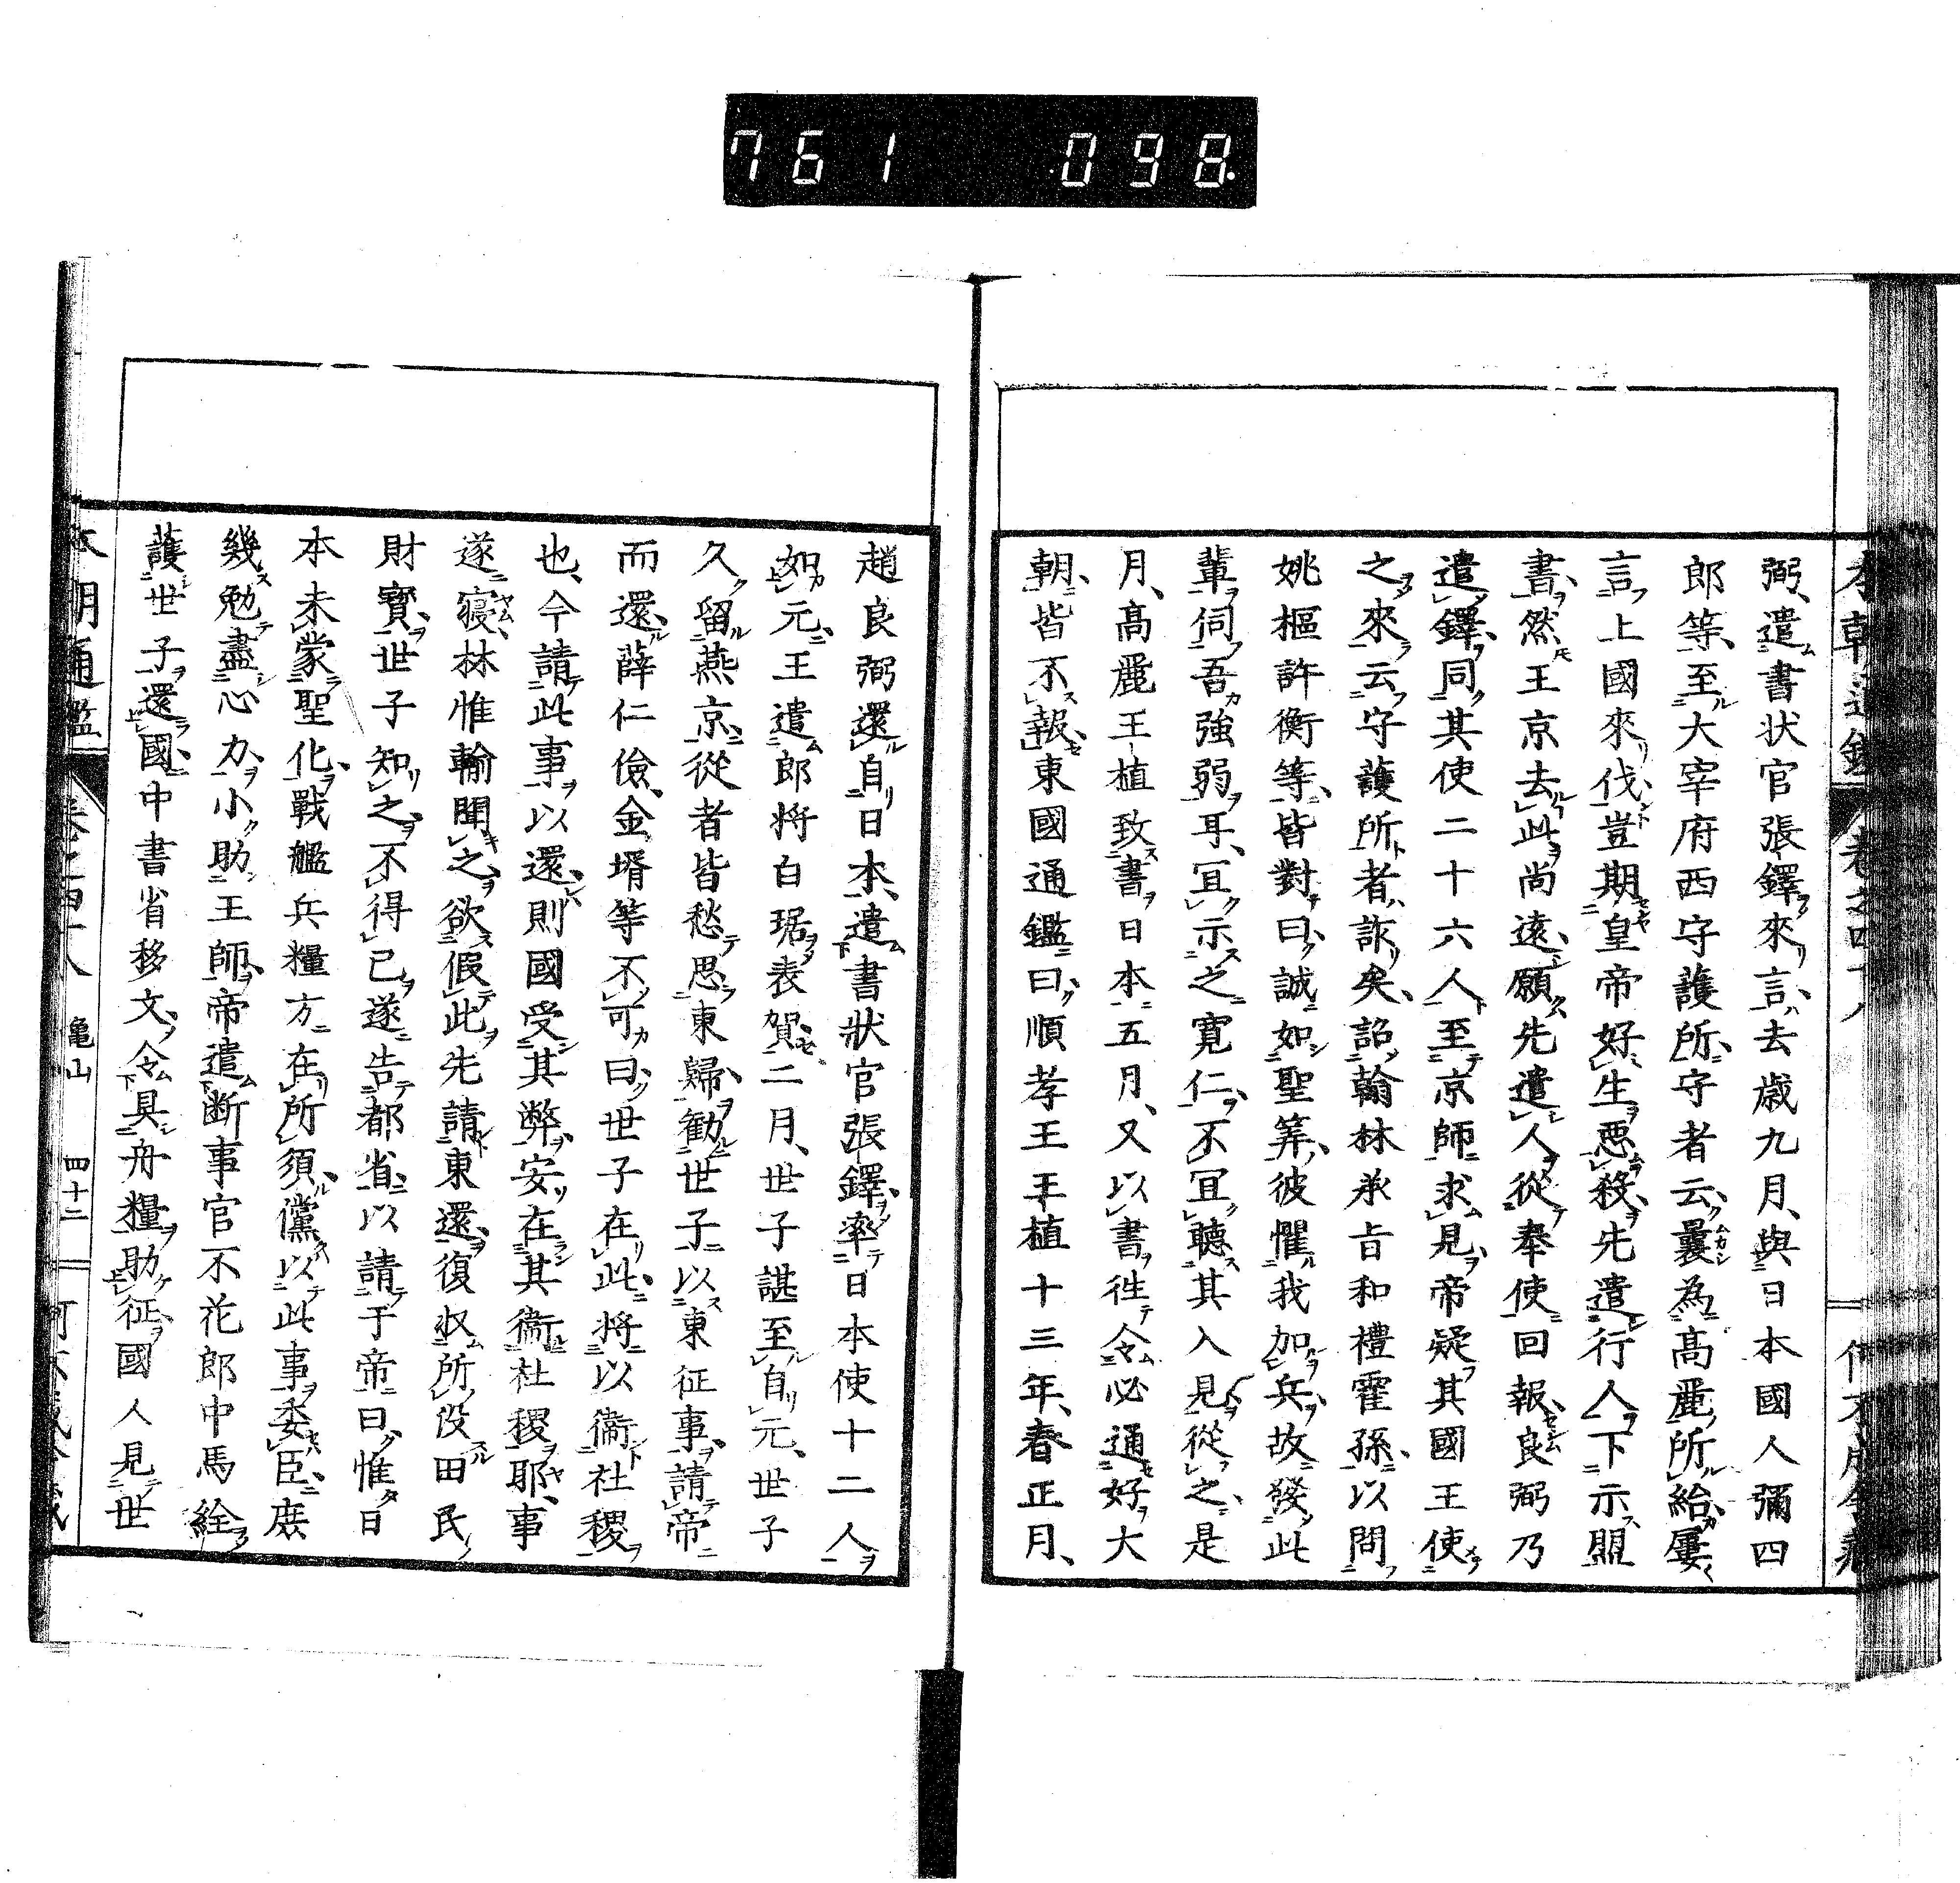 761 098
弼、遣書状官張鐸來言、去歳九月、與日本國人彌四
郎等、至大宰府西守護所、守者云、曩為高麗所紿、屢
言上國來伐、豈期皇帝好生惡殺、先遣行人下示盟
書、然王京去此尚遠、願先遣人從奉使回報、良弼乃
遣鐸同其使二十六人、至京師求見、帝疑其國王使
之來、云守護所者詐矣、詔翰林承旨和禮霍孫、以問
姚樞許衡等、皆對曰、誠如聖筭、彼懼我加兵、故發此
輩伺吾強弱耳、冝示之寛仁、不冝聽其入見、從之、是
月、高麗王植致書日本、五月、又以書徃令必通好大
朝、皆不報、東國通鑑曰、順孝王王植十三年、春正月、
趙良弼還自日本、遣書狀官張鐸、率日本使十二人
如元、王遣郎将白琚表賀、二月、世子諶至自元、世子
久留燕京、從者皆愁思東歸、勸世子以東征事、請帝
而還、薛仁儉、金壻等不可曰、世子在此、将以衞社稷
也、今請此事以還、則國受其弊、安在其衞社稷耶、事
遂寝、林惟輸聞之、欲假此先請東還、復収所没田民
財寶、世子知之、不得已、遂告都省、以請于帝曰、惟日
本未蒙聖化、戰艦兵糧方在所須、儻以此事委臣、庶
幾勉盡心力、小助王師、帝遣断事官不花郎中馬絟
護世子還國、中書省移文、令具舟糧助征、國人見世
本朝通鑑 卷之四十八 亀山 四十二